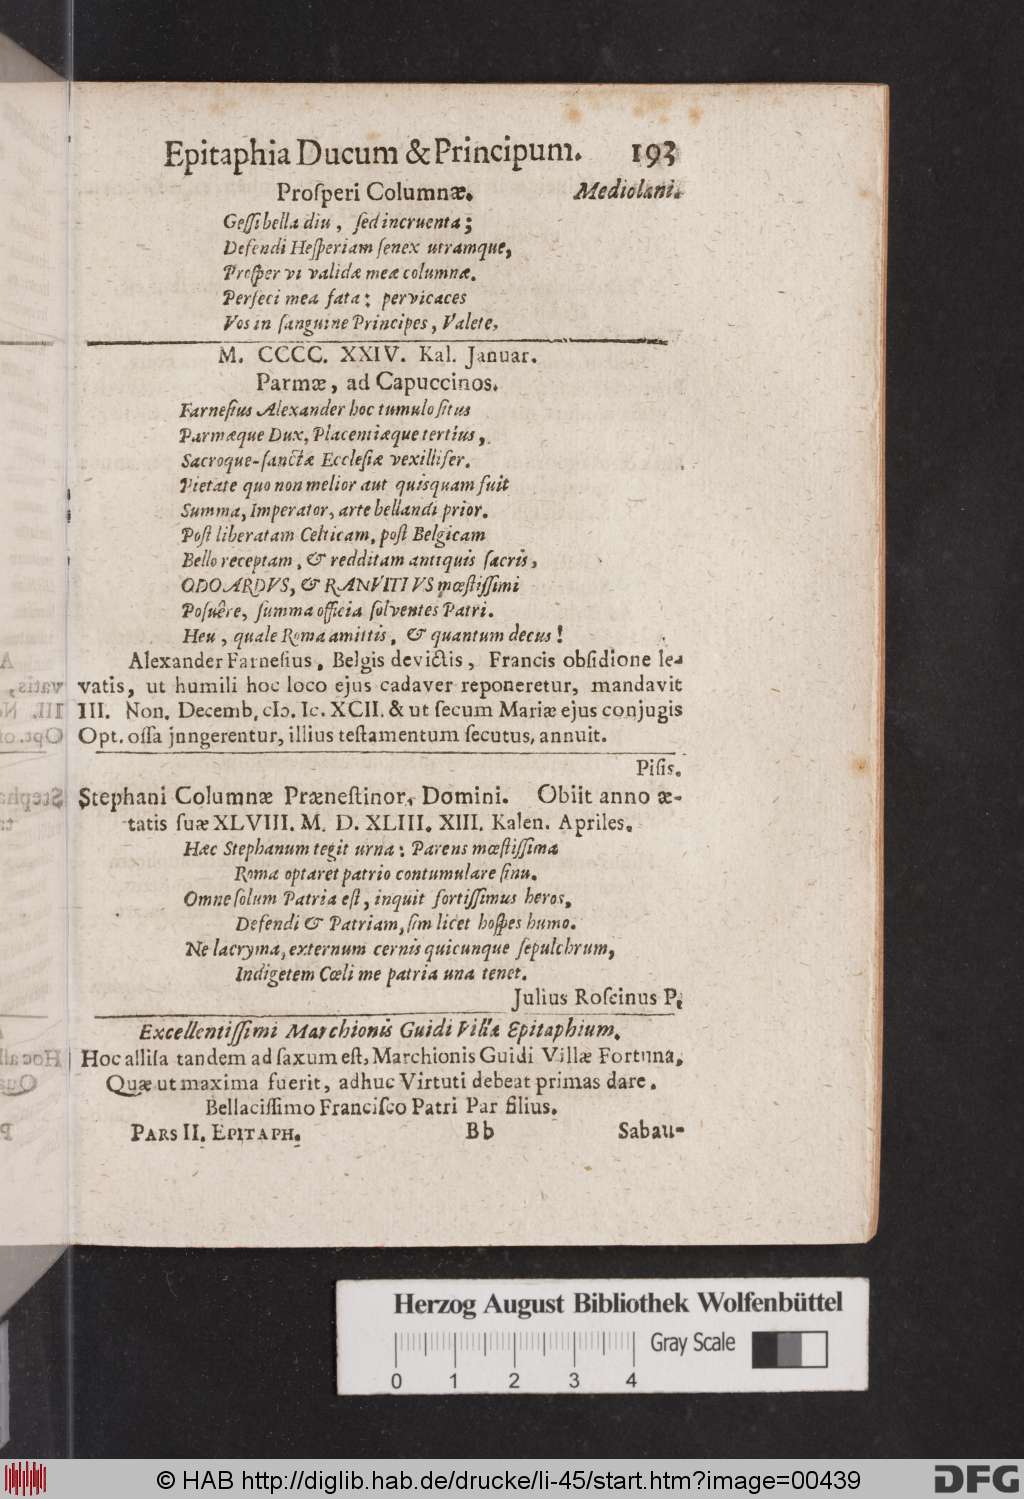 Epitaphia Ducum & Principum. 193
Proſperi Columnæ. Mediolani.
Geſſi bella diu, ſed incruenta;
Defendi Heſperiam ſenex utramque,
Proſper vi validæ meæ columnæ.
Perfeci mea fata: pervicaces
Vos in ſanguine Principes, Valete,
M. CCCC. XXIV. Kal. Januar.
Parmæ, ad Capuccinos.
Farneſius Alexander hoc tumulo ſitus
Parmæque Dux, Placentiæque tertius,
Sacroque-ſanctæ Eccleſiæ vexillifer.
Pietate quo non melior aut quisquam fuit
Summa, Imperator, arte bellandi prior.
Poſt liberatam Celticam, poſt Belgicam
Bello receptam, & redditam antiquis ſacris,
ODOARDVS, & RANVITIVS mœſtiſſimi
Poſuêre, ſumma officia ſolventes Patri.
Heu, quale Roma amittis, & quantum decus!
Alexander Farneſius, Belgis devictis, Francis obſidione le-
vatis, ut humili hoc loco ejus cadaver reponeretur, mandavit
III. Non. Decemb, cIↄ. Ic. XCII. & ut ſecum Mariæ ejus conjugis
Opt. oſſa jnngerentur, illius teſtamentum ſecutus, annuit.
Piſis.
Stephani Columnæ Præneſtinor. Domini. Obiit anno æ-
tatis ſuæ XLVIII. M. D. XLIII. XIII. Kalen. Apriles.
Hæc Stephanum tegit urna: Parens mœſtiſſima
Roma optaret patrio contumulare ſinu.
Omne ſolum Patria eſt, inquit fortiſſimus heros,
Defendi & Patriam, ſim licet hoſpes humo.
Ne lacryma, externum cernis quicunque ſepulchrum,
Indigetem Cœli me patria una tenet.
Julius Roſcinus P.
Excellentiſſimi Marchionis Guidi Villæ Epitaphium.
Hoc alliſa tandem ad ſaxum eſt, Marchionis Guidi Villæ Fortuna,
Quæ ut maxima fuerit, adhuc Virtuti debeat primas dare.
Bellaciſſimo Franciſco Patri Par filius.
PARS II. EPITAPH. Bb Sabau-
Herzog August Bibliothek Wolfenbüttel
Gray Scale
0 1 2 3 4
© HAB http://diglib.hab.de/drucke/li-45/start.htm?image=00439
DFG